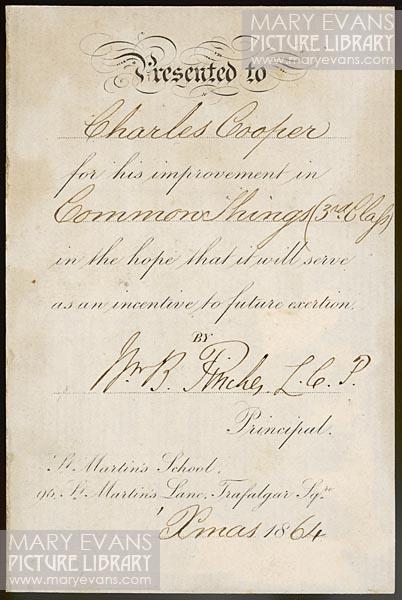 MARY EVANS
PICTURE LIBRARY
www.maryevans.com
Presented to
Charles Cooper
for his improvement in
Common Things (3rd Class)
in the hope that it will serve
as an incentive to future exertion.
BY
Wm B. Pincher, L.C.P.
Principal.
St. Martin's School.
St. Martin's Lane, Trafalgar Sqre
Xmas 1864
MARY EVANS
PICTURE LIBRARY
www.maryevans.com